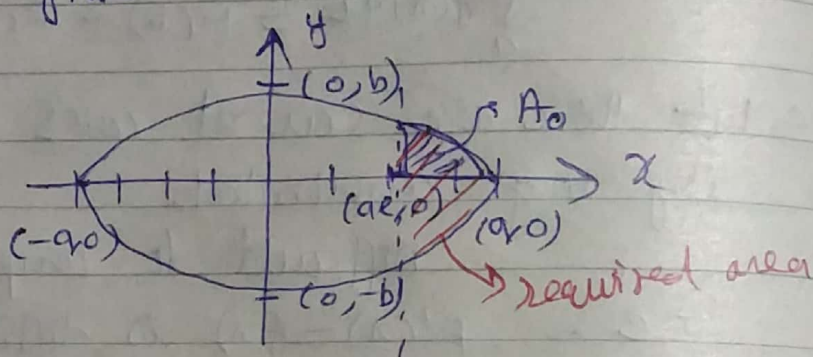 y
(0,b)
A₀
x
(ae,0)
(-a,0)
(a,0)
required area
(0,-b)